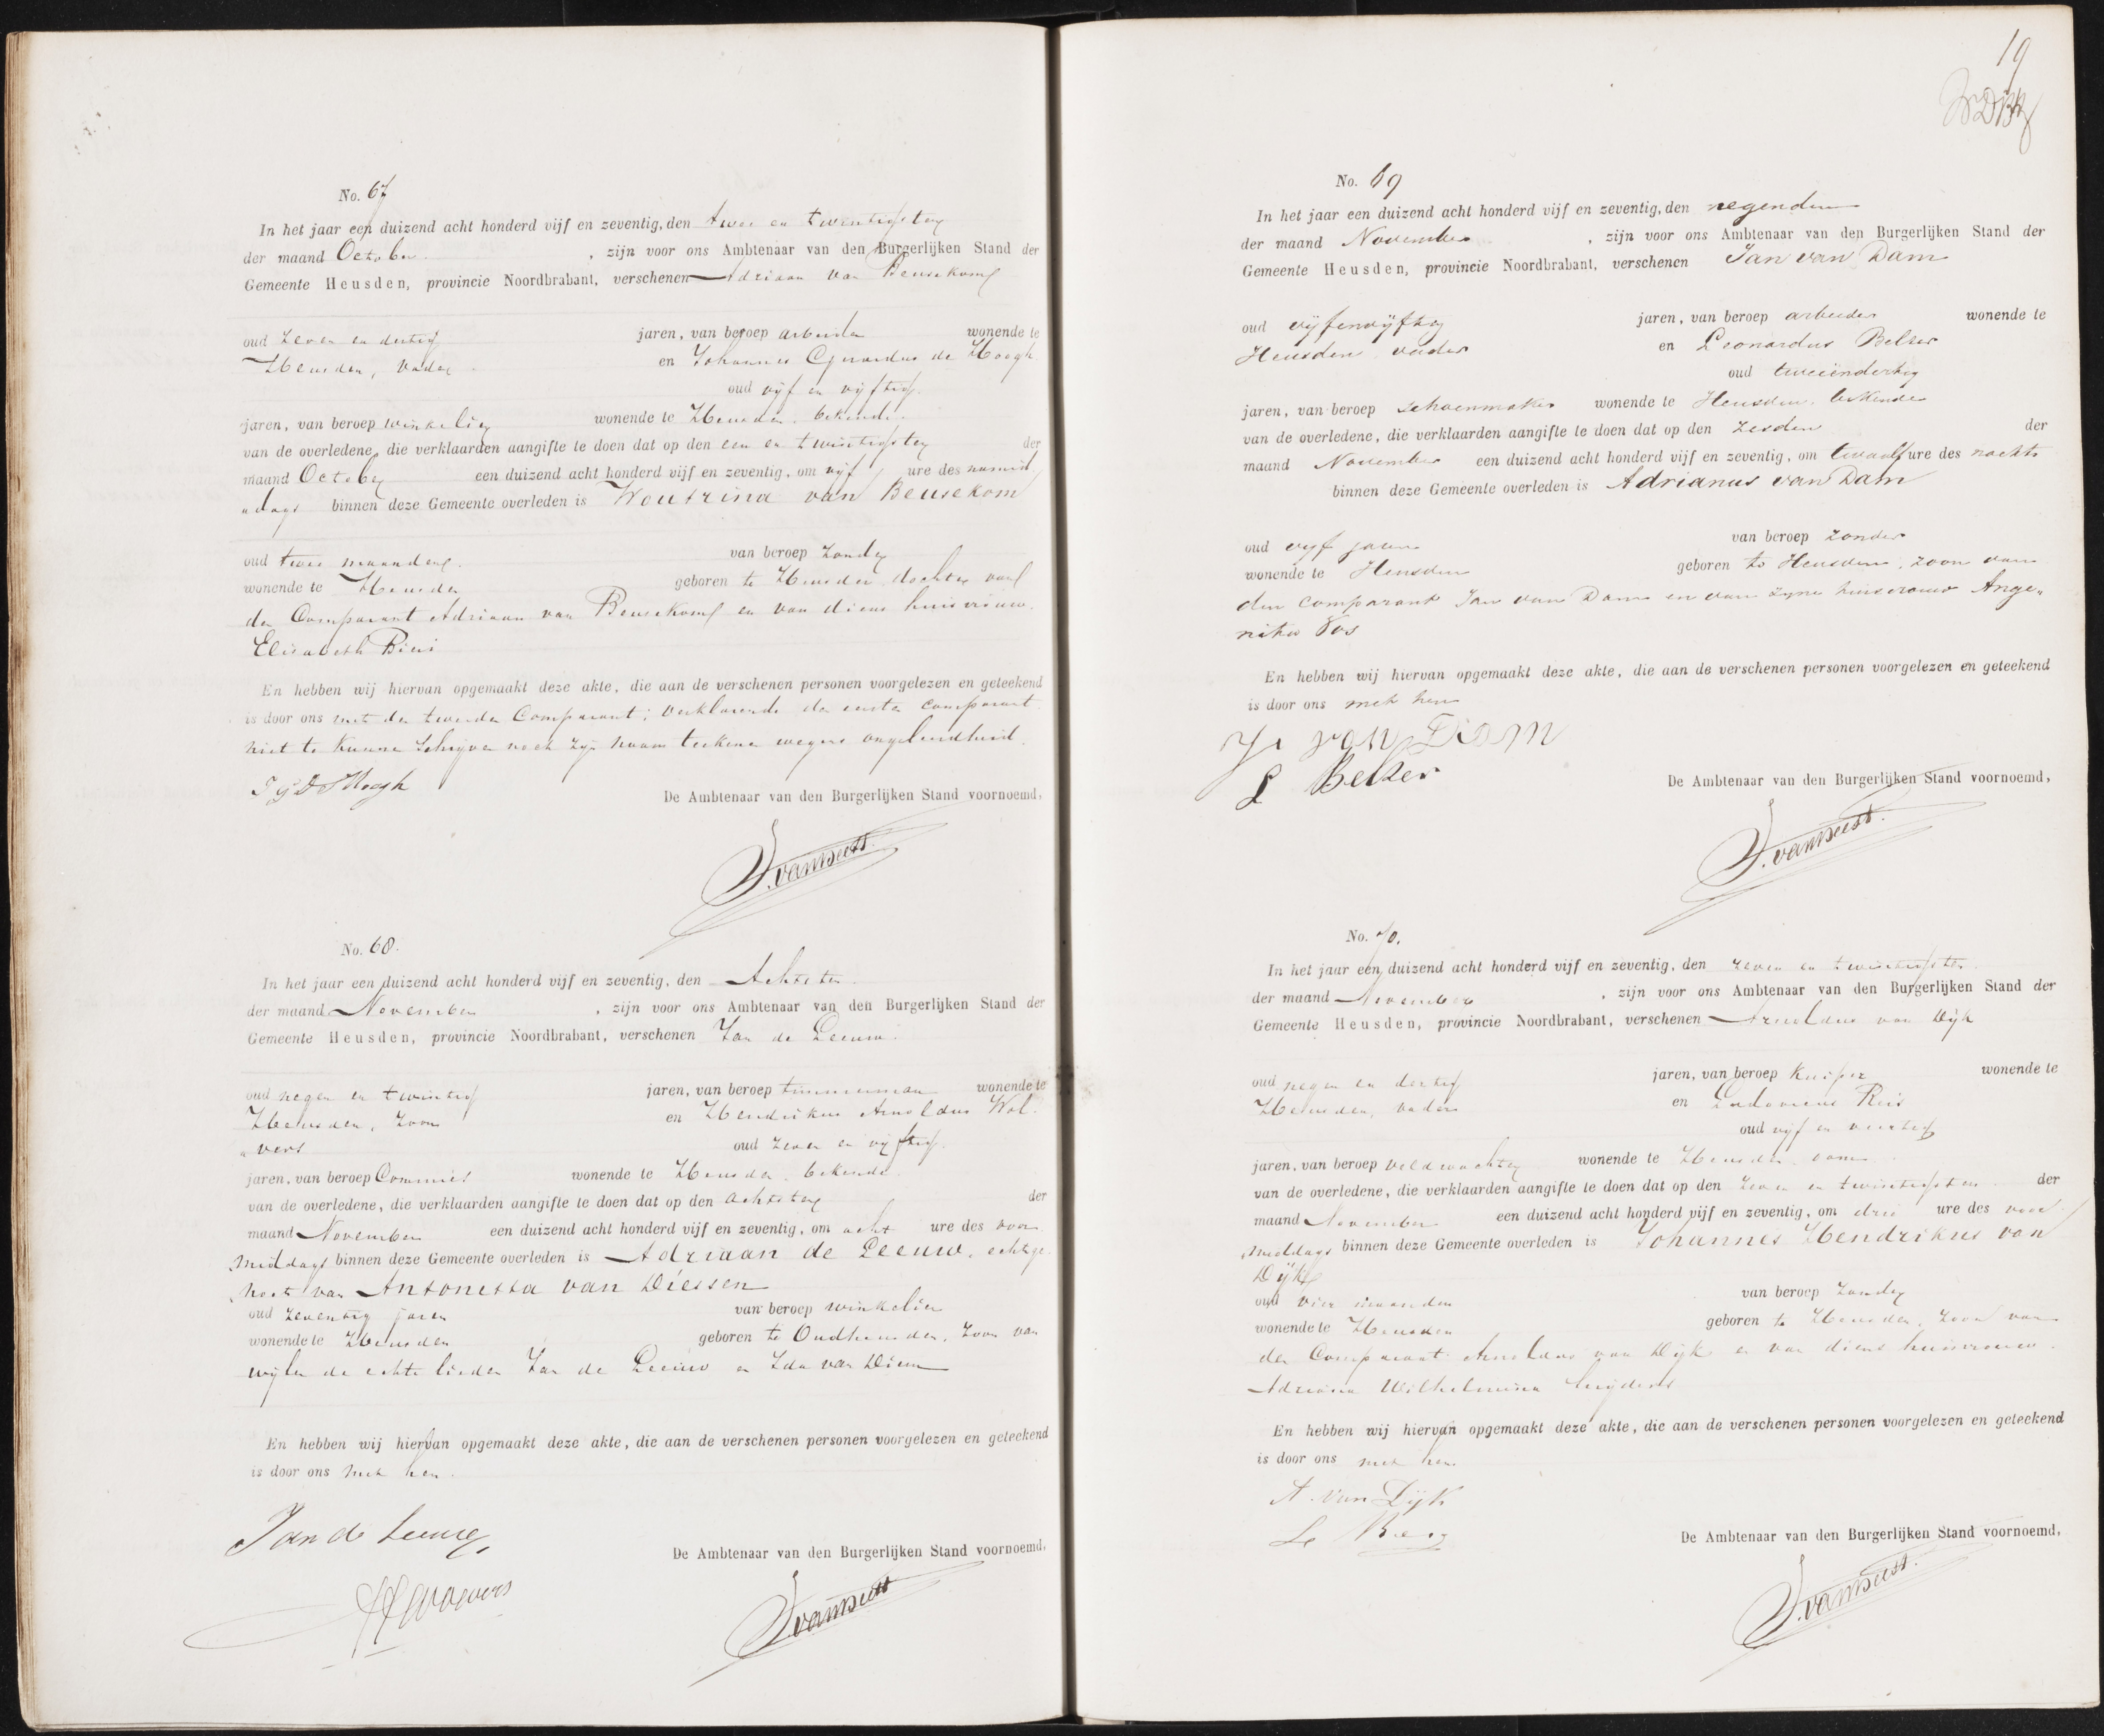 No. 67
In het jaar een duizend acht honderd vijf en zeventig, den twee en twintigsten
der maand October , zijn voor ons Ambtenaar van den Burgerlijken Stand der
Gemeente Heusden, provincie Noordbrabant, verschenen Adriaan van Beusekom
oud zeven en dertig jaren, van beroep arbeider wonende te
Heusden, vader en Johannes Gerardus de Hoogh
oud vijf en vijftig
jaren, van beroep winkelier wonende te Heusden, bekende
van de overledene, die verklaarden aangifte te doen dat op den een en twintigsten der
maand October een duizend acht honderd vijf en zeventig, om vijf ure des namid
„dags binnen deze Gemeente overleden is Woutrina van Beusekom
oud twee maanden van beroep zonder
wonende te Heusden geboren te Heusden, dochter van
den Comparant Adriaan van Beusekom en van diens huisvrouw
Elisabeth
En hebben wij hiervan opgemaakt deze akte, die aan de verschenen personen voorgelezen en geteekend
is door ons met den tweeden Comparant; verklarende de eerste comparant
niet te kunnen schrijven noch zijn naam teekenen wegens ongeleerdheid.
De Ambtenaar van den Burgerlijken Stand voornoemd,
No. 68.
In het jaar een duizend acht honderd vijf en zeventig, den Achtsten
der maand November , zijn voor ons Ambtenaar van den Burgerlijken Stand der
Gemeente Heusden, provincie Noordbrabant, verschenen Jan de Leeuw
oud negen en twintig jaren, van beroep timmerman wonende te
Heusden, zoon en Hendrikus Arnoldus Wol
„vers oud zeven en vijftig
jaren, van beroep Commies wonende te Heusden, bekende
van de overledene, die verklaarden aangifte te doen dat op den achtsten der
maand November een duizend acht honderd vijf en zeventig, om acht ure des voor
„middags binnen deze Gemeente overleden is Adriaan de Leeuw, echtge
„noot van Antonetta van Diessen
oud zeventig jaren van beroep winkelier
wonende te Heusden geboren te Oudheusden, zoon van
wijlen de echte lieden Jan de Leeuw en Ida van
En hebben wij hiervan opgemaakt deze akte, die aan de verschenen personen voorgelezen en geteekend
is door ons met hen.
Jan de Leeuw
De Ambtenaar van den Burgerlijken Stand voornoemd,
19
No. 69
In het jaar een duizend acht honderd vijf en zeventig, den negenden
der maand November , zijn voor ons Ambtenaar van den Burgerlijken Stand der
Gemeente Heusden, provincie Noordbrabant, verschenen Jan van Dam
oud vijfenvijftig jaren, van beroep arbeider wonende te
Heusden vader en Leonardus Belzer
oud tweeëndertig
jaren, van beroep schoenmaker wonende te Heusden, bekende
van de overledene, die verklaarden aangifte te doen dat op den zesden der
maand November een duizend acht honderd vijf en zeventig, om twaalf ure des nachts
binnen deze Gemeente overleden is Adrianus van Dam
oud vijf jaren van beroep zonder
wonende te Heusden geboren te Heusden, zoon van
den comparant Jan van Dam en van zijne huisvrouw Ange„
nita Vos
En hebben wij hiervan opgemaakt deze akte, die aan de verschenen personen voorgelezen en geteekend
is door ons met hen
J. van Dam
L Belzer
De Ambtenaar van den Burgerlijken Stand voornoemd,
No. 70.
In het jaar een duizend acht honderd vijf en zeventig, den zeven en twintigsten
der maand November , zijn voor ons Ambtenaar van den Burgerlijken Stand der
Gemeente Heusden, provincie Noordbrabant, verschenen Arnoldus van Dijk
oud negen en dertig jaren, van beroep Kuiper wonende te
Heusden, vader en Ludovicus
oud vijf en veertig
jaren, van beroep veldwachter wonende te Heusden, oom
van de overledene, die verklaarden aangifte te doen dat op den zeven en twintigsten der
maand November een duizend acht honderd vijf en zeventig, om drie ure des voor
„middags binnen deze Gemeente overleden is Johannes Hendrikus van
Dijk
oud vier maanden van beroep zonder
wonende te Heusden geboren te Heusden, zoon van
den Comparant Arnoldus van Dijk en van diens huisvrouw
Adriana Wilhelmina
En hebben wij hiervan opgemaakt deze akte, die aan de verschenen personen voorgelezen en geteekend
is door ons met hen.
A. van Dijk
De Ambtenaar van den Burgerlijken Stand voornoemd,